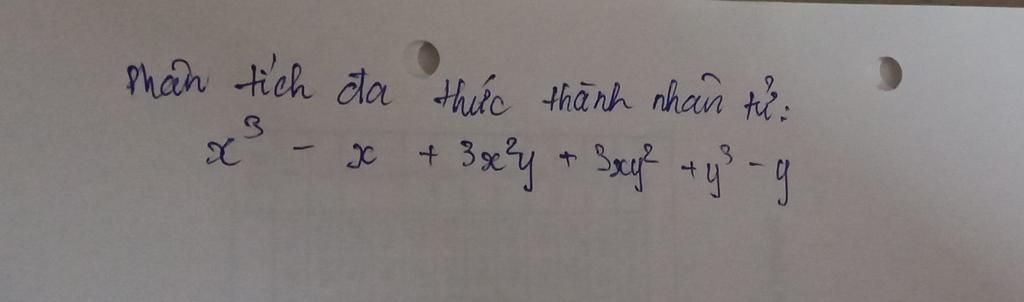 Phân tích đa thức thành nhân tử:
x³ - x + 3x²y + 3xy² + y³ - y